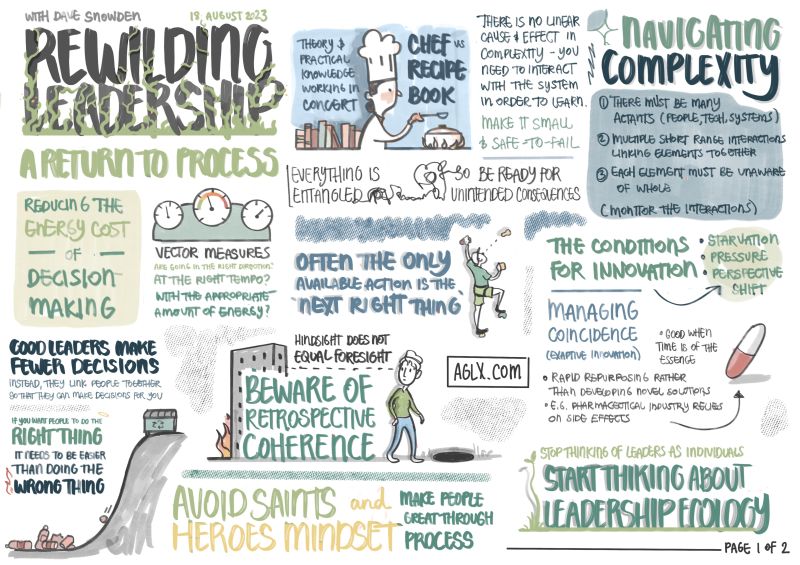 WITH DAVE SNOWDEN
18, AUGUST 2023
REWILDING
LEADERSHIP
A RETURN TO PROCESS
THEORY &
PRACTICAL
KNOWLEDGE
WORKING IN
CONCERT
CHEF vs
RECIPE
BOOK
THERE IS NO LINEAR
CAUSE & EFFECT IN
COMPLEXITY - YOU
NEED TO INTERACT
WITH THE SYSTEM
IN ORDER TO LEARN.
MAKE IT SMALL
& SAFE-TO-FAIL
NAVIGATING
COMPLEXITY
① THERE MUST BE MANY
ACTANTS (PEOPLE, TECH, SYSTEMS)
② MULTIPLE SHORT RANGE INTERACTIONS
LINKING ELEMENTS TOGETHER
③ EACH ELEMENT MUST BE UNAWARE
OF WHOLE
(MONITOR THE INTERACTIONS)
EVERYTHING IS
ENTANGLED
SO BE READY FOR
UNINTENDED CONSEQUENCES
REDUCING THE
ENERGY COST
- OF -
DECISION
MAKING
VECTOR MEASURES
ARE GOING IN THE RIGHT DIRECTION?
AT THE RIGHT TEMPO?
WITH THE APPROPRIATE
AMOUNT OF ENERGY?
OFTEN THE ONLY
AVAILABLE ACTION IS THE
'NEXT RIGHT THING'
THE CONDITIONS
FOR INNOVATION
• STARVATION
• PRESSURE
• PERSPECTIVE
SHIFT
MANAGING
COINCIDENCE
(EXAPTIVE INNOVATION)
• GOOD WHEN
TIME IS OF THE
ESSENCE
• RAPID REPURPOSING RATHER
THAN DEVELOPING NOVEL SOLUTIONS
• E.G. PHARMACEUTICAL INDUSTRY RELIES
ON SIDE EFFECTS
GOOD LEADERS MAKE
FEWER DECISIONS
INSTEAD, THEY LINK PEOPLE TOGETHER
SO THAT THEY CAN MAKE DECISIONS FOR YOU
HINDSIGHT DOES NOT
EQUAL FORESIGHT
BEWARE OF
RETROSPECTIVE
COHERENCE
AGLX.COM
IF YOU WANT PEOPLE TO DO THE
RIGHT THING
IT NEEDS TO BE EASIER
THAN DOING THE
WRONG THING
AVOID SAINTS and
HEROES MINDSET
MAKE PEOPLE
GREAT THROUGH
PROCESS
STOP THINKING OF LEADERS AS INDIVIDUALS
START THIKING ABOUT
LEADERSHIP ECOLOGY
PAGE 1 OF 2